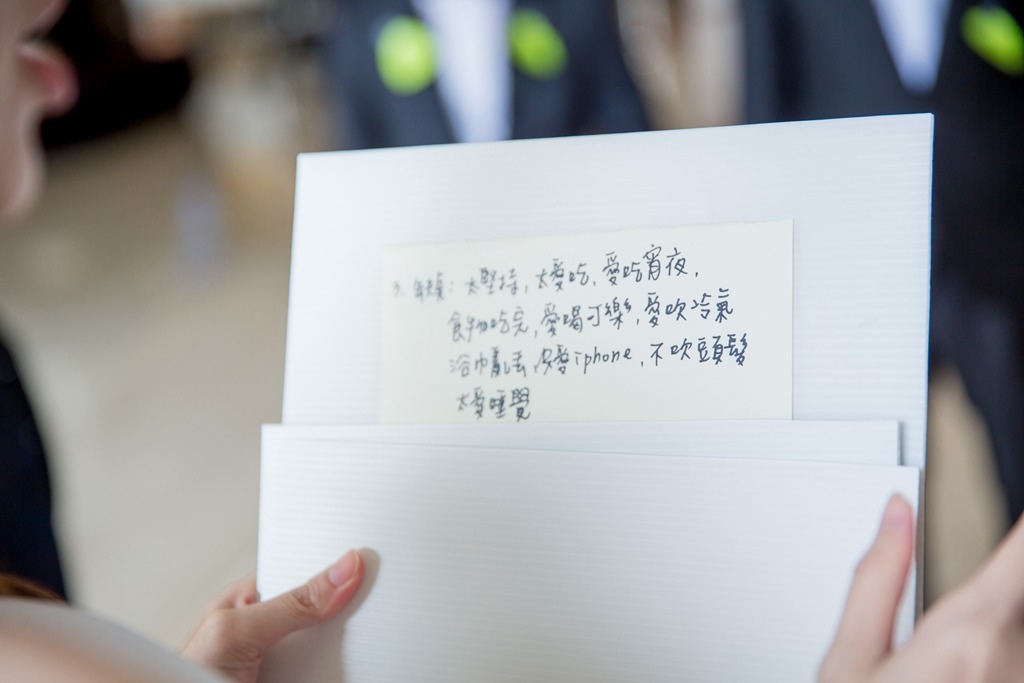 太堅持,太愛吃,愛吃宵夜,
食物吃完,愛喝可樂,愛吹冷氣
浴巾亂丟,愛iphone,不吹頭髮
太愛睡覺